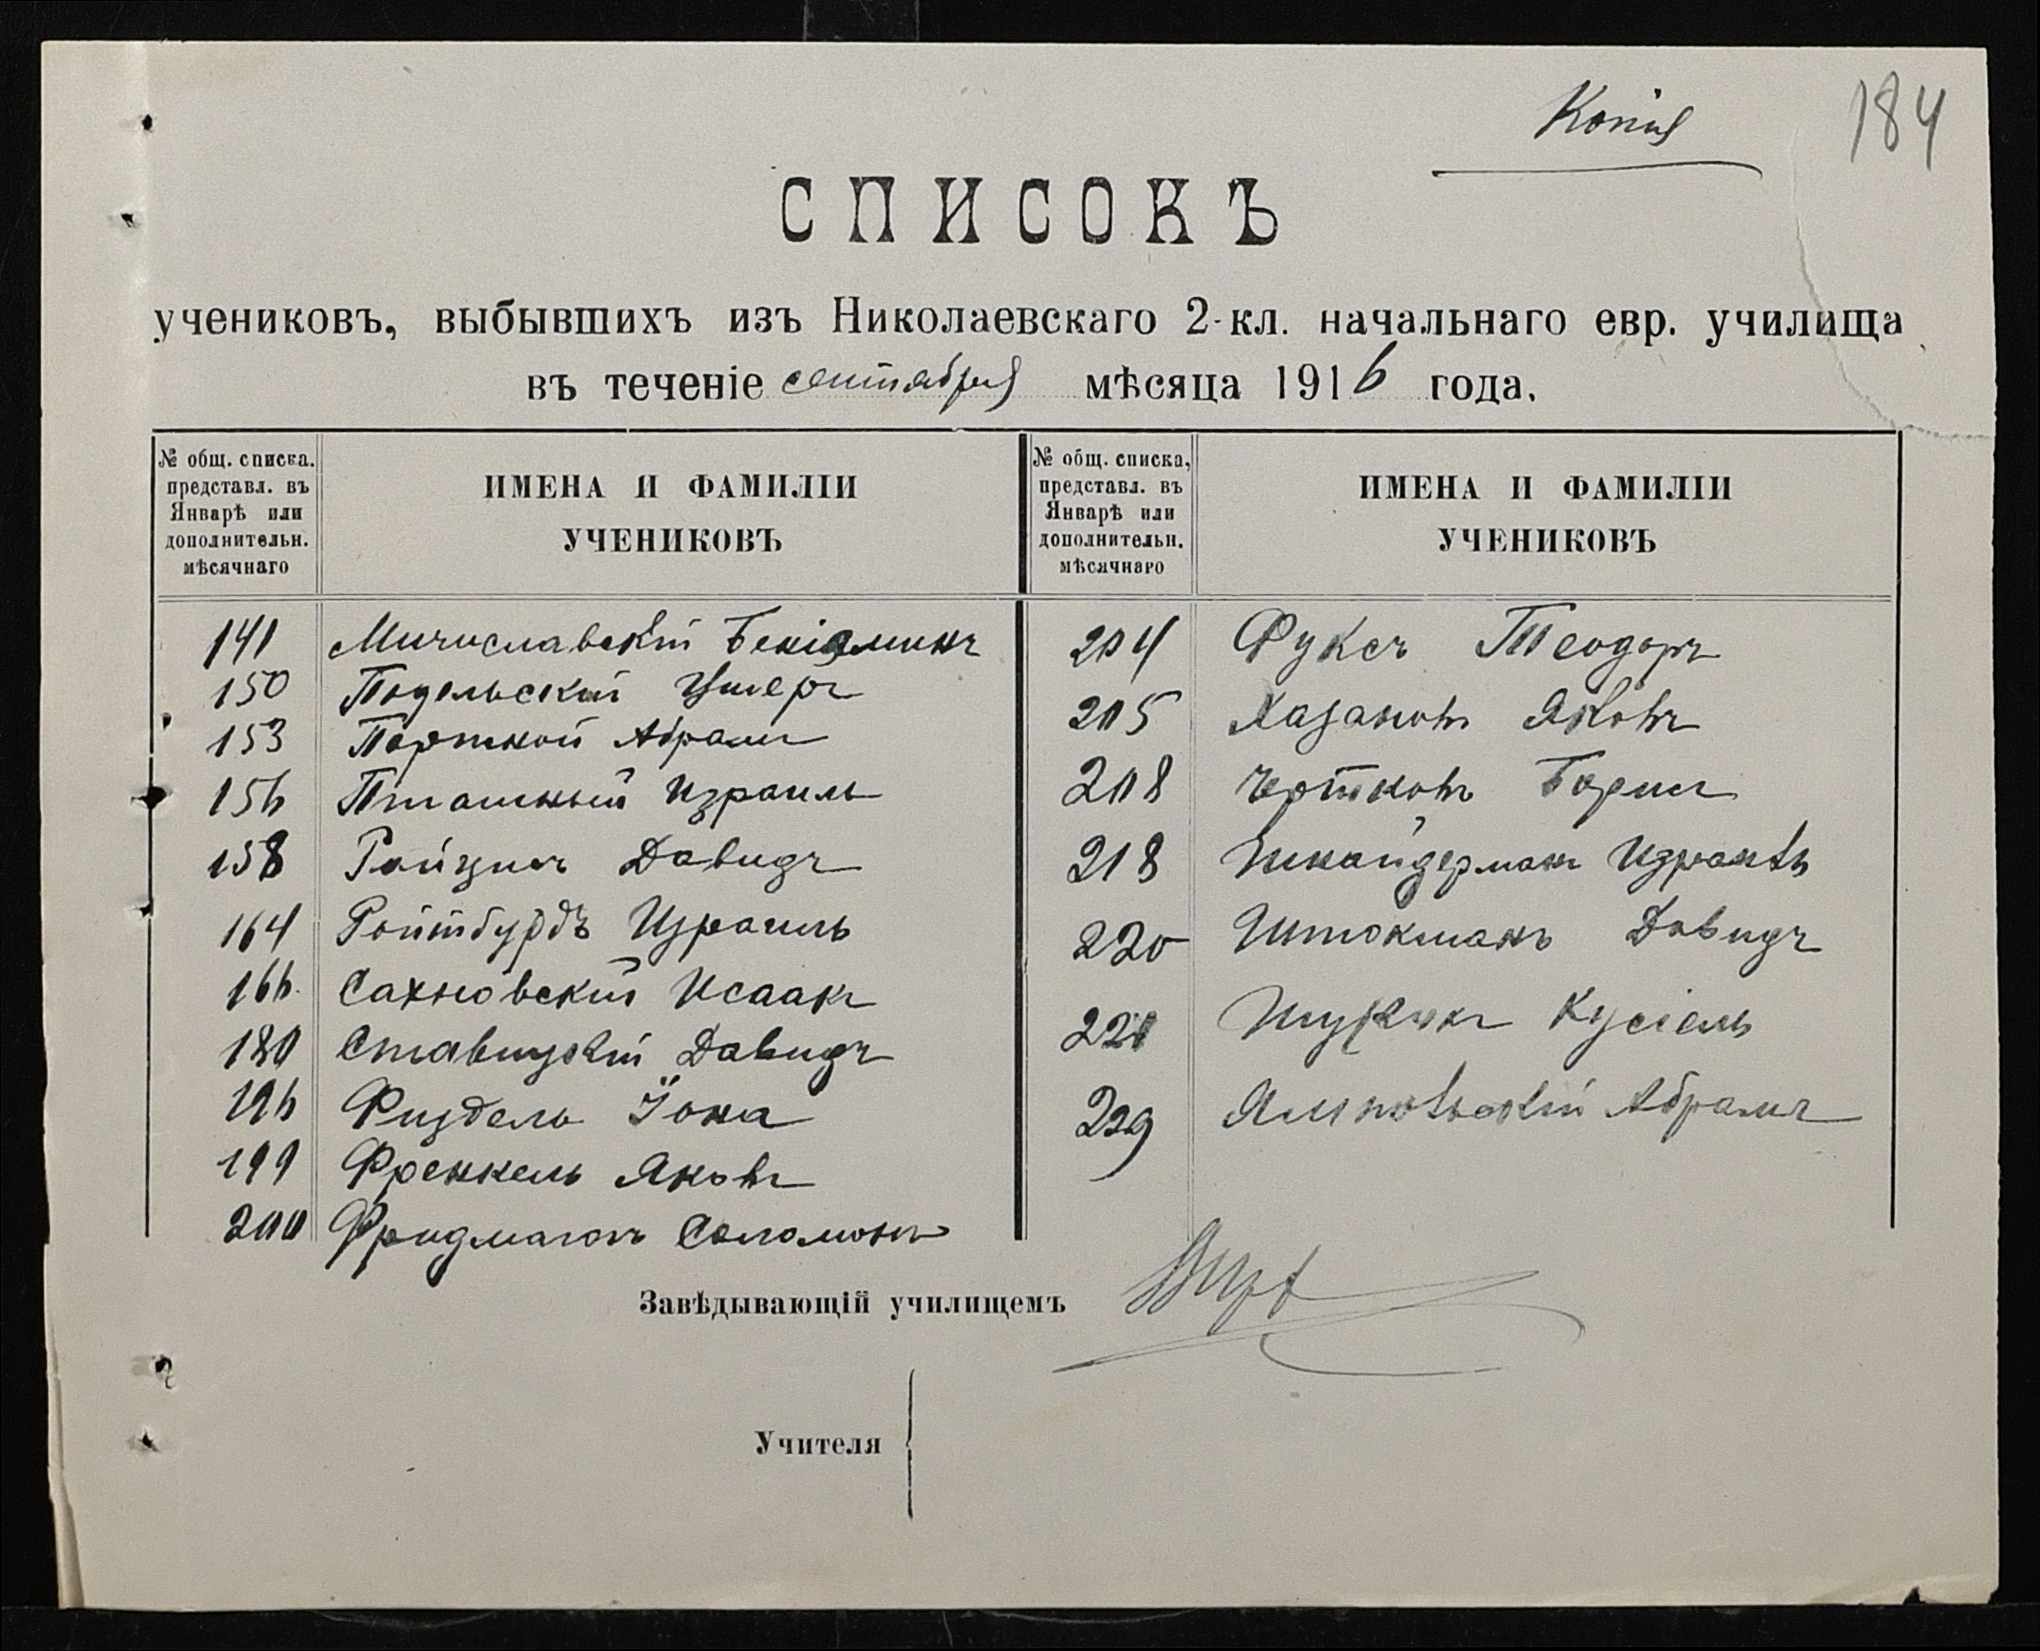 Копія
184
СПИСОКЪ
учениковъ, выбывшихъ изъ Николаевскаго 2-кл. начальнаго евр. училища
въ теченіе сентября мѣсяца 1916 года.
№ общ. списка.
представл. въ
Январѣ или
дополнительн.
мѣсячнаго
ИМЕНА И ФАМИЛІИ
УЧЕНИКОВЪ
№ общ. списка,
представл. въ
Январѣ или
дополнительн.
мѣсячнаго
ИМЕНА И ФАМИЛІИ
УЧЕНИКОВЪ
141 Мичиславскій Беніаминъ
150 Подельскій Ушеръ
153 Портной Абрамъ
156 Пташный Израиль
158 Давидъ
164 Ройтбурдъ Израиль
166 Сахновскій Исаакъ
180 Ставицкій Давидъ
196 Физдель Іона
199 Френкель Яковъ
200 Фридманъ Соломонъ
204 Фуксъ Теодоръ
205 Хазановъ Яковъ
208 Чертковъ Борисъ
218 Шнайдерманъ
220 Штокманъ Давидъ
221 Кусіель
229 Ямпольскій Абрамъ
Завѣдывающій училищемъ
Учителя